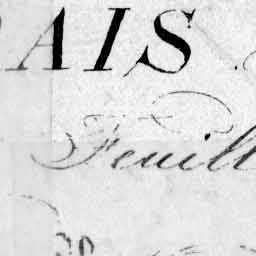 AIS
Feuill